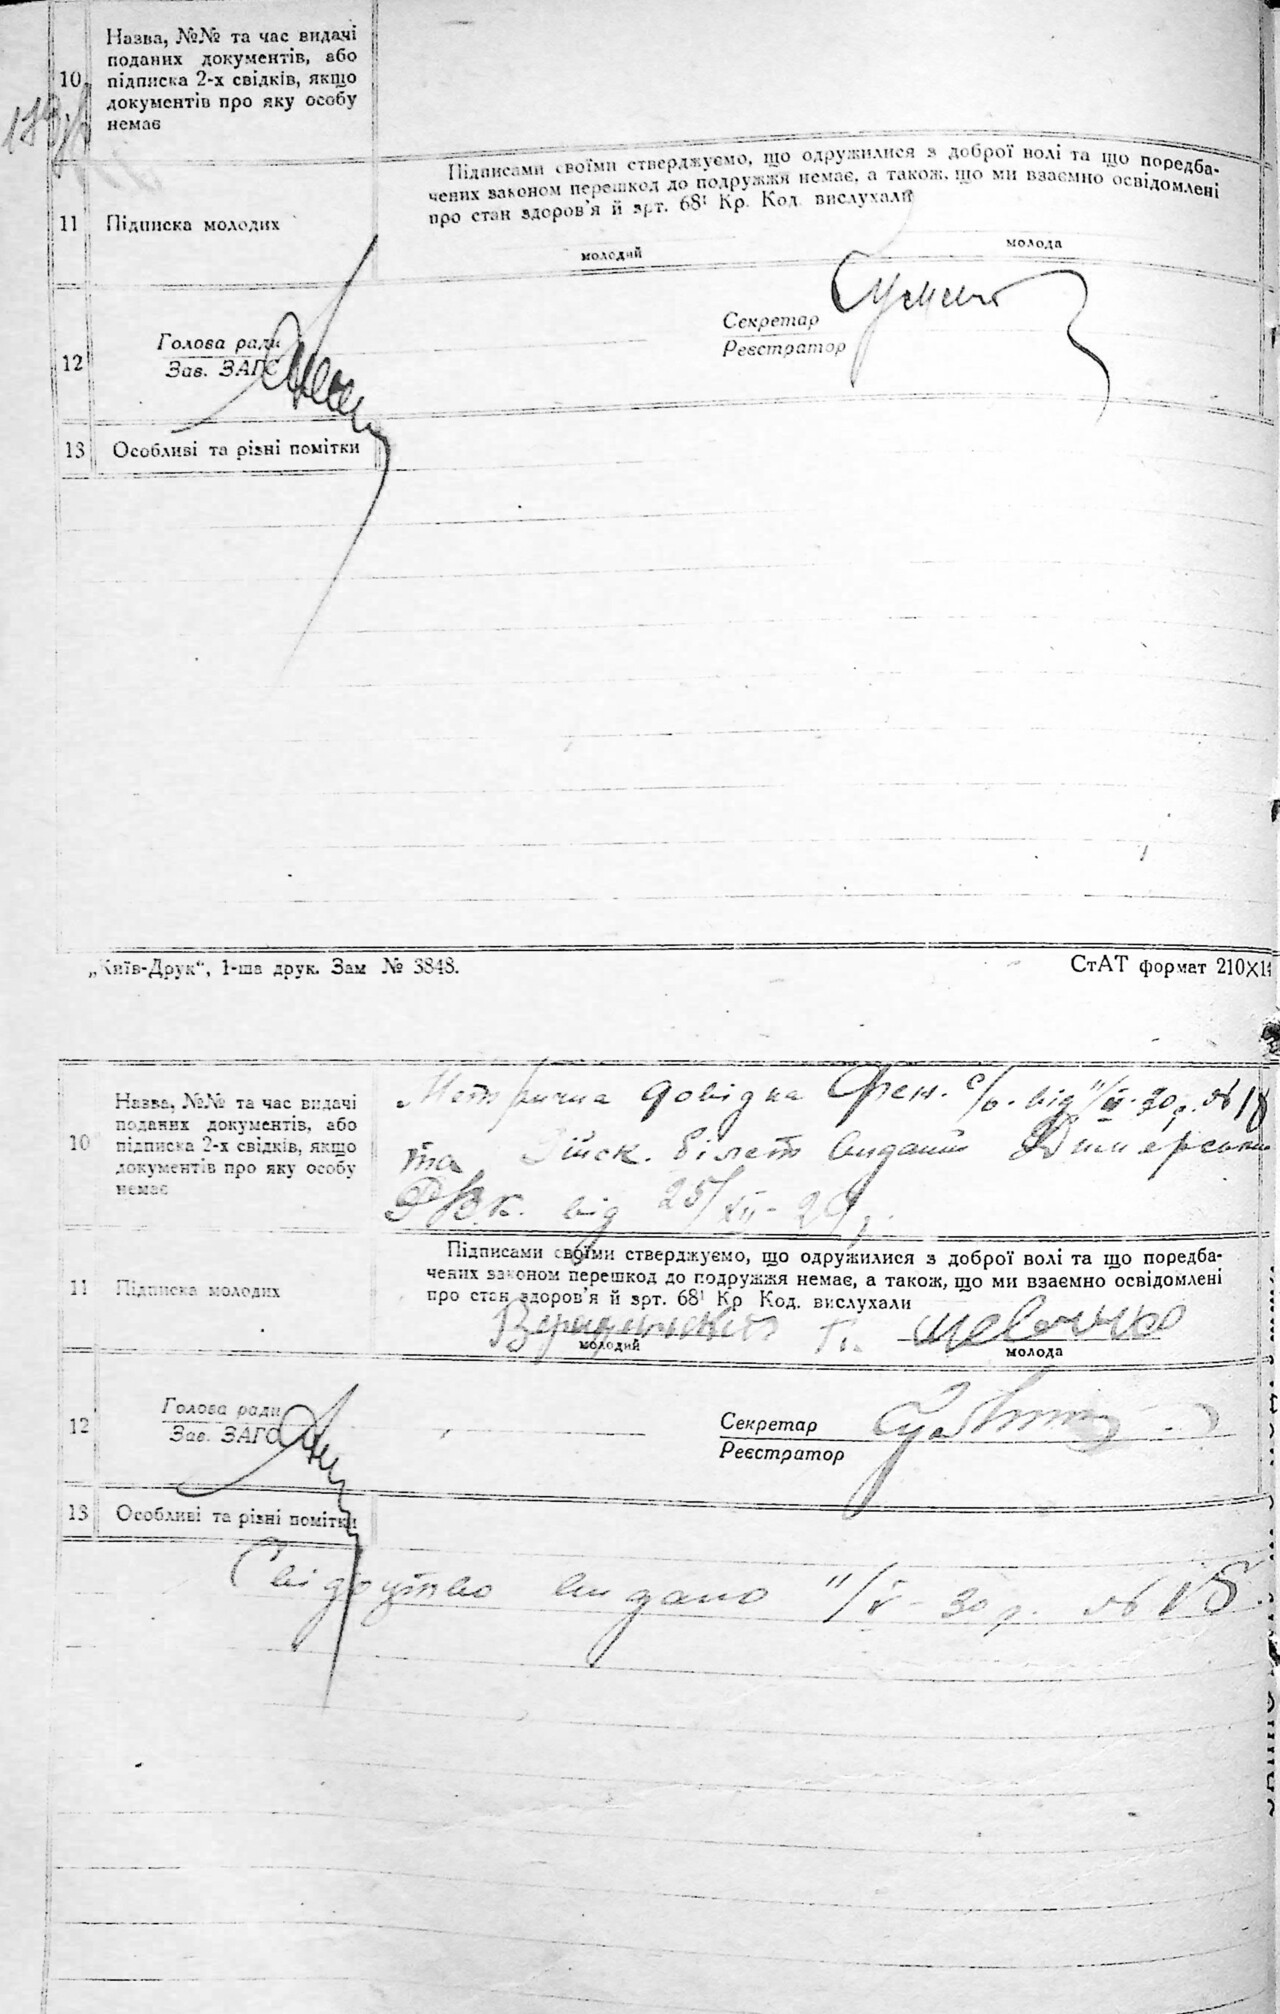 Назва, №№ та час видачі
поданих документів, або
10 підписка 2-х свідків, якщо
документів про яку особу
немає
Підписами своїми стверджуємо, що одружилися з доброї волі та що поредба-
чених законом перешкод до подружжя немає, а також, що ми взаємно освідомлені
про стан здоров'я й арт. 68¹ Кр. Код. вислухали
11 Підписка молодих
молодий молода
Секретар
Реєстратор
Голова ради
12 Зав. ЗАГС
13 Особливі та різні помітки
„Київ-Друк“, 1-ша друк. Зам № 3848. СтАТ формат 210X14
Назва, №№ та час видачі
поданих документів, або
10 підписка 2-х свідків, якщо
документів про яку особу
немає
Метрична довідка Фен. с/в. від 11/V-30р. № 18
та Війск. білет виданий Димерським
РВК. від 25/XII-29р.
Підписами своїми стверджуємо, що одружилися з доброї волі та що поредба-
чених законом перешкод до подружжя немає, а також, що ми взаємно освідомлені
про стан здоров'я й арт. 68¹ Кр Код. вислухали
11 Підписка молодих
Шевченко
молодий молода
Голова ради
12 Зав. ЗАГС
Секретар
Реєстратор
13 Особливі та різні помітки
Свідоцтво видано 11/V-30р. № 18.